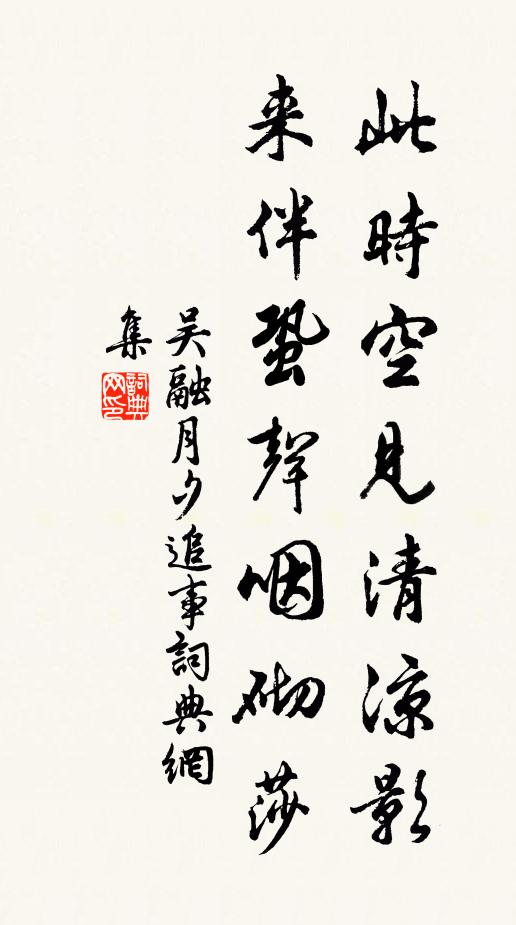 此時空見清涼影
来伴蛩聲咽砌莎
吳融月夕追事詞典網
集
詞典
网印